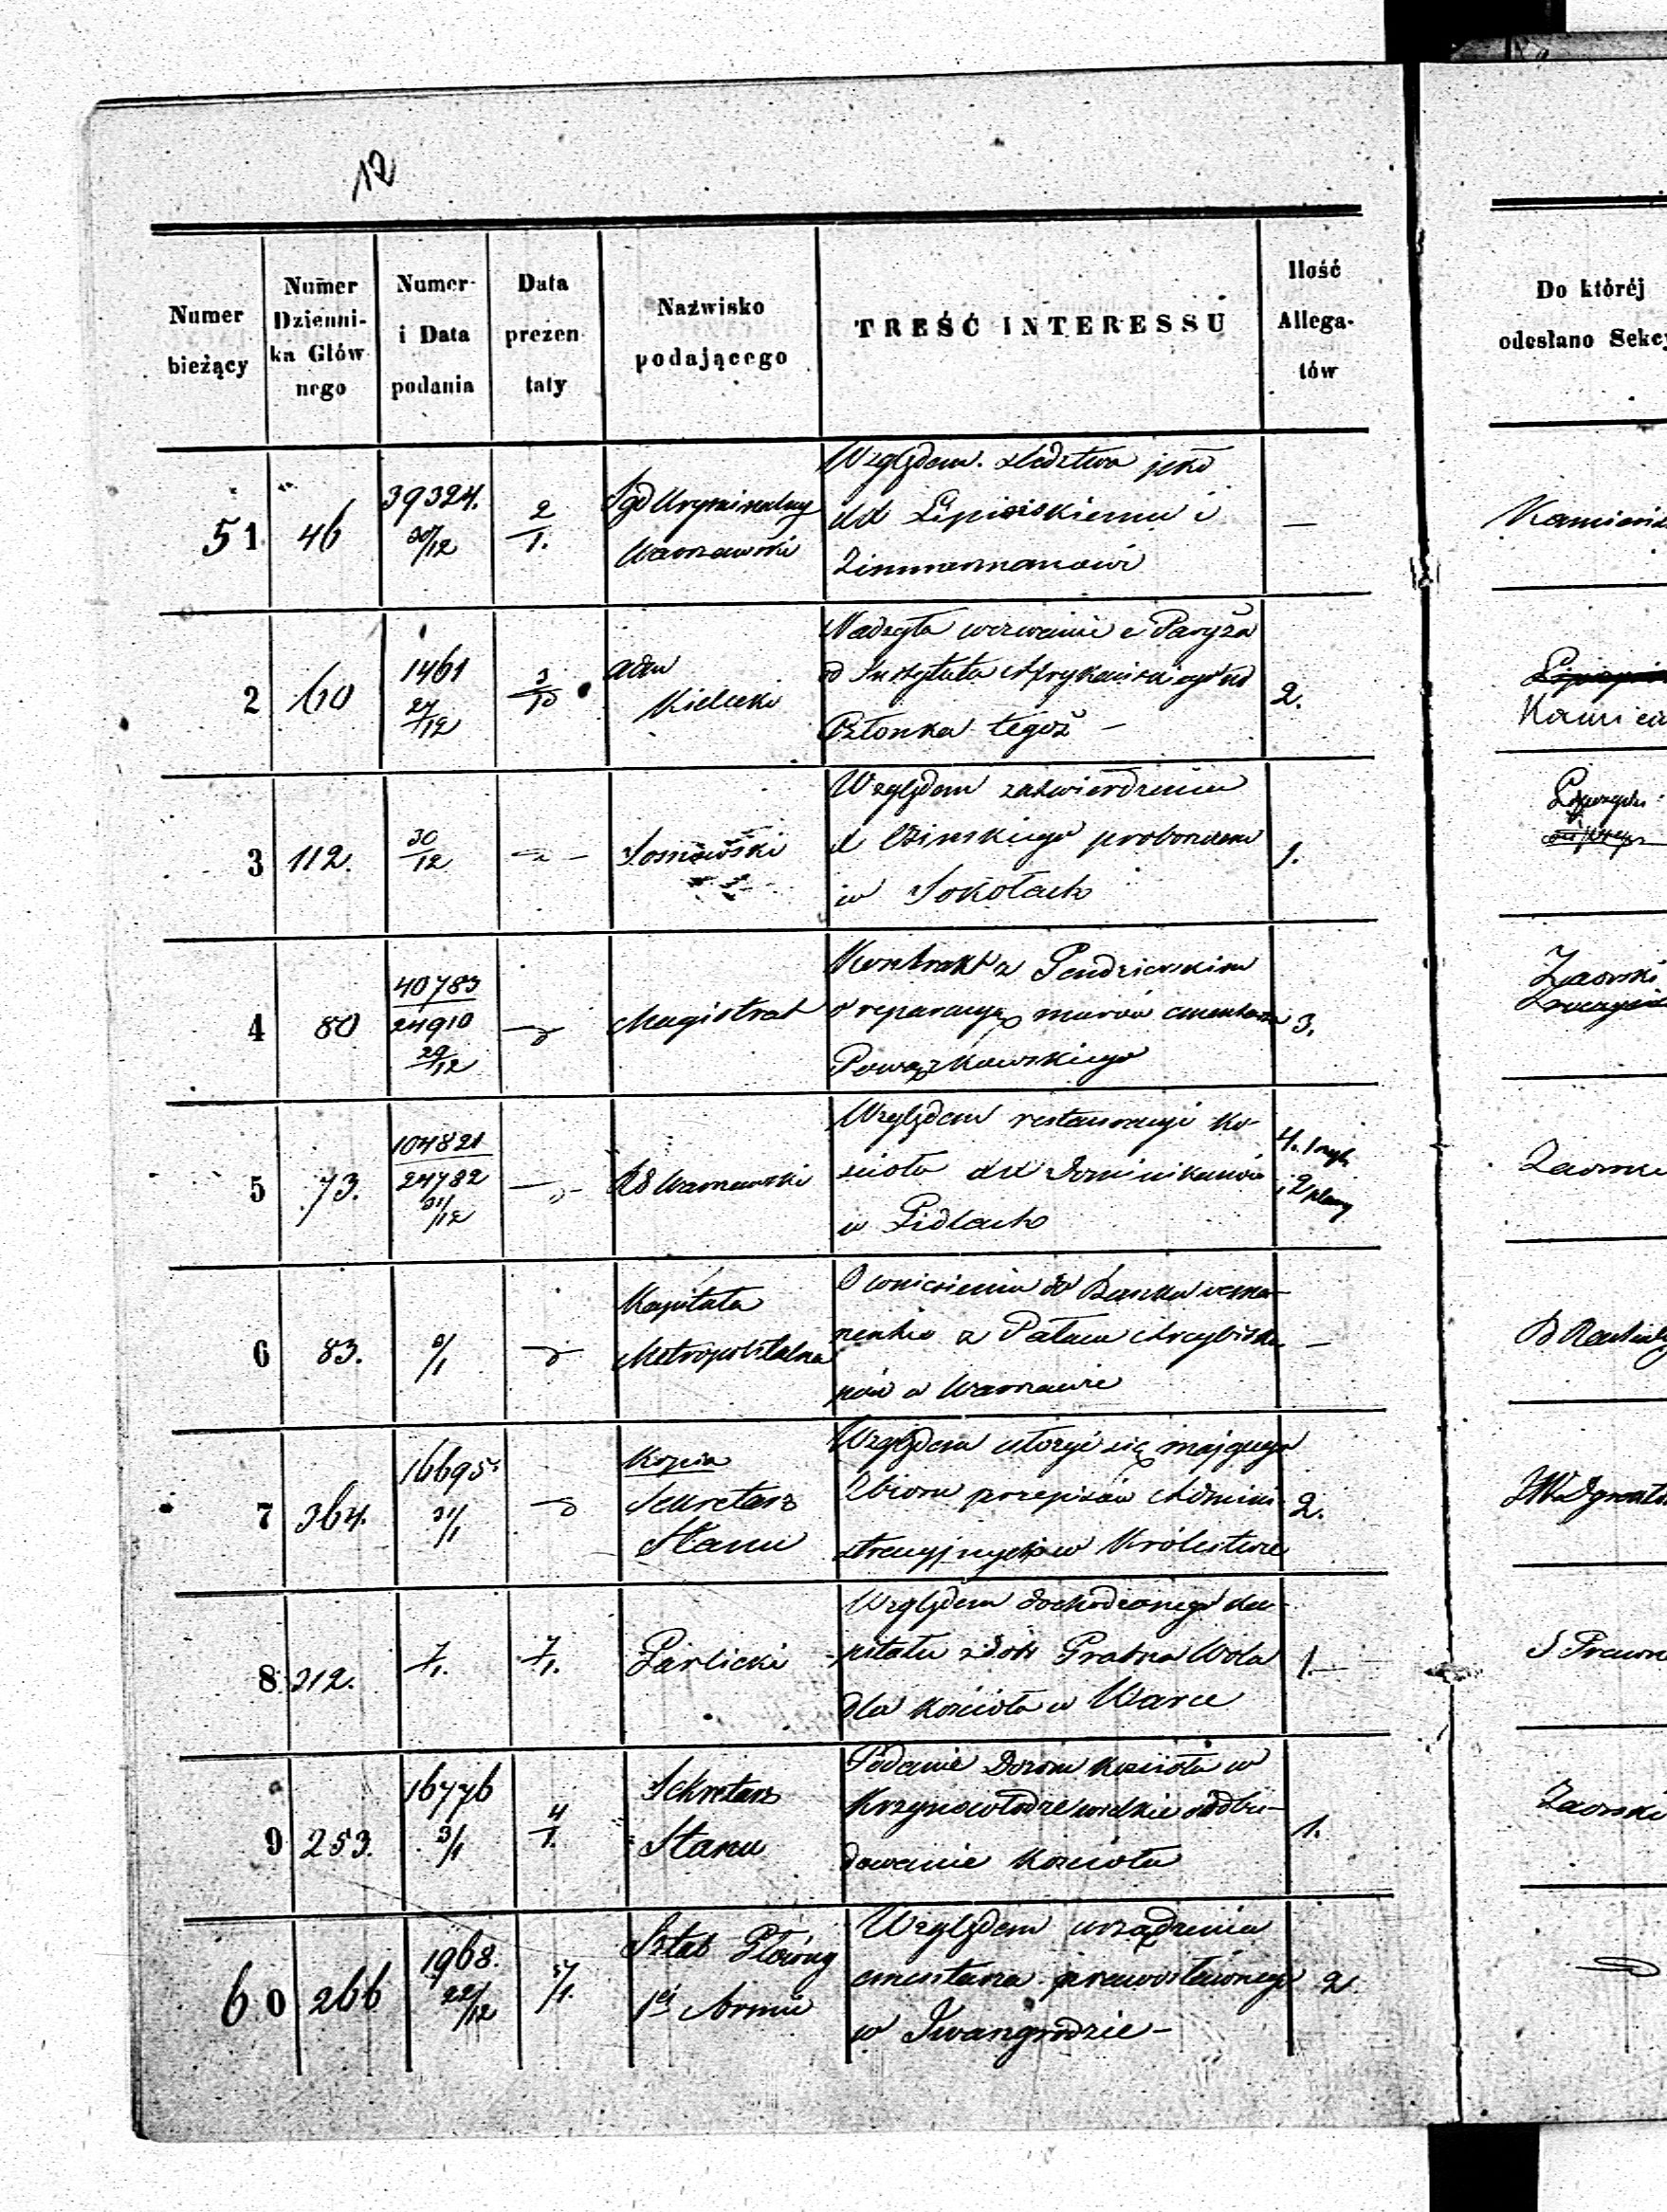 12
Numer bieżący
Numer Dzienni-ka Głów-nego
Numer i Data podania
Data prezen-taty
Nazwisko podającego
TREŚĆ INTERESSU
Ilość Allega-tów
Do któréj odesłano Sekcy
51 46 39324. 30/12 2/1. Sąd Kryminalny Warszawski
Względem śledztwa pko
XX Lipińskiemu i
Zimmermanowi
—
2 60 1461 27/12 Kielecki
Nadsyła wezwanie z Paryża
od Instytutu Afrykańskiego na
Członka tegoż —
2.
3 112. 30/12 Sosnowski
Względem zatwierdzenia
proboszczem
w Sokołach
1.
4 80 40783 24910 29/12 Magistrat
Kontrakt z
o reparacyę murów cmentarza
Powązkowskiego
3.
Zaorski
5 73. 104821 24782 31/12 Warszawski
Względem restauracyi ko-
ścioła XX Dominikanów
w Gidlach
4.
2 plany
6 83. Kapituła Metropolitalna
O wniesieniu do Banku
z Pałacu Arcybisku-
pów w Warszawie
—
7 364. 16695. 31/1 Kopia Sekretarz Stanu
Względem ułożyć się mającego
Zbioru przepisów Admini-
stracyjnych w Królestwie
2.
8 212. 7/1. 7/1. Garlicki
Względem dochodzonego ka-
pitału z dóbr Grabna Wola
dla kościoła w Warce
1.
9 253. 16776 3/1 4/1. Sekretarz Stanu
Podanie Dozoru kościoła w
Krzynowłodze wielkiej o odbu-
dowanie kościoła
1.
Zaorski
60 266 1968. 22/12 Sztab Główny 1ej Armii
Względem urządzenia
cmentarza prawosławnego
w Iwangrodzie —
2